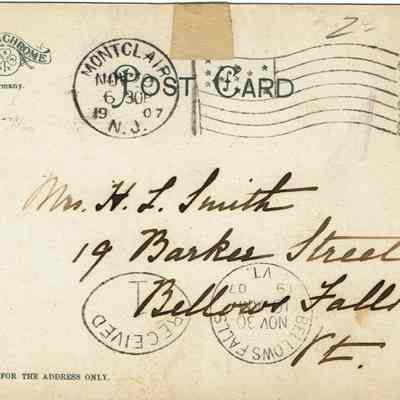 CHROME
many.
MONTCLAIR
6 30P
1907
N.J.
POST CARD
2
Mrs. H. L. Smith
19 Barker Street
Bellows Falls
Vt.
RECEIVED
1
BELLOWS FALLS
NOV 30
07
VT.
FOR THE ADDRESS ONLY.